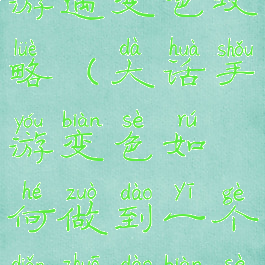 游遍变色攻
lüè dà huà shǒu
略（大话手
yóu biàn sè rú
游变色如
hé zuò dào yī gè
何做到一个